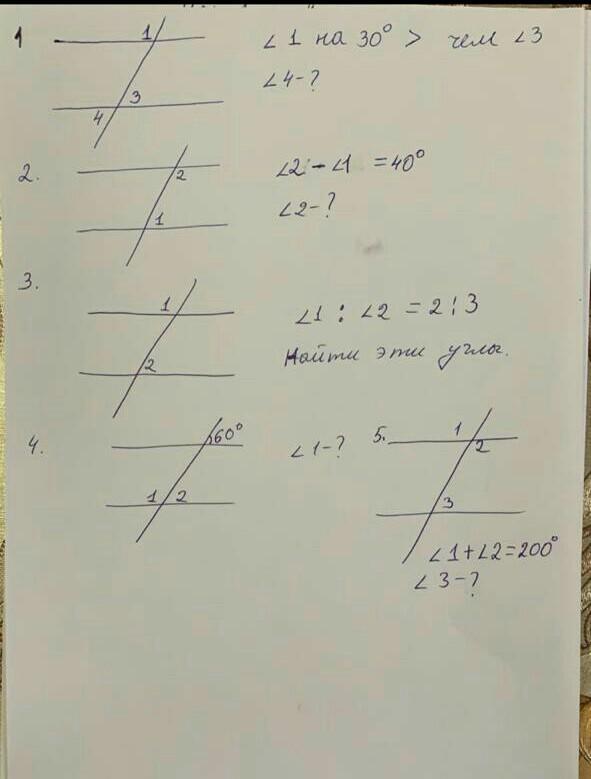 1 1 ∠1 на 30° > чем ∠3
3
4 ∠4-?
2. 2 ∠2 - ∠1 = 40°
1 ∠2-?
3. 1 ∠1 : ∠2 = 2:3
2 Найти эти углы.
4. 60° ∠1-?
1 2
5. 1
2
3
∠1+∠2=200°
∠3-?